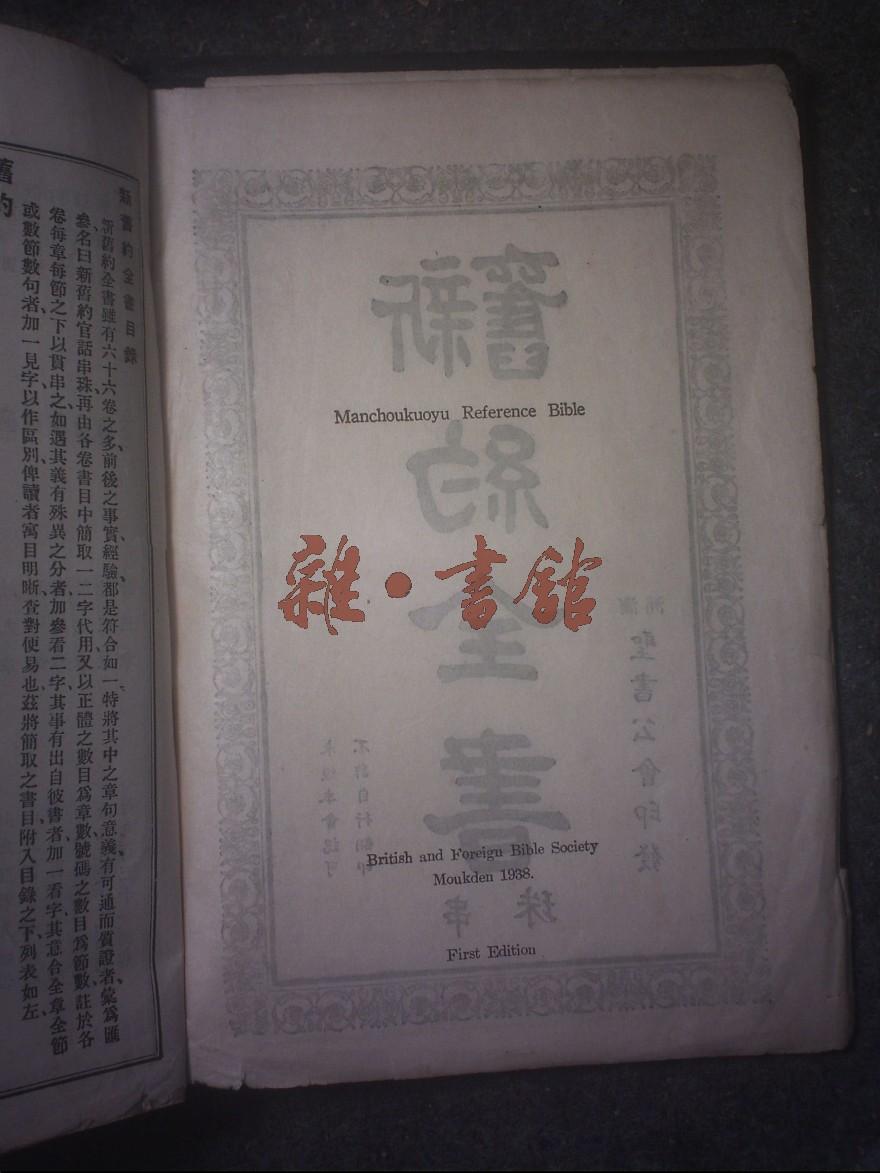 Manchoukuoyu Reference Bible
British and Foreign Bible Society
Moukden 1938.
First Edition
新舊
約
全
書
串珠
聖書公會印發
未經本會認可
不許自行翻印
雜·書館
新舊約全書目錄
新舊約全書雖有六十六卷之多、前後之事實經驗、都是符合如一、特將其中之章句意義有可通而質證者、彙爲匯
叅名曰新舊約官話串珠、再由各卷書目中簡取一二字代用、又以正體之數目爲章數、號碼之數目爲節數、註於各
卷每章每節之下以貫串之、如遇其義有殊異之分者、加叅看二字、其事有出自彼書者、加一看字、其意合全章全節
或數節數句者、加一見字、以作區別、俾讀者寓目明晰、查對便易也、茲將簡取之書目附入目錄之下、列表如左
舊約